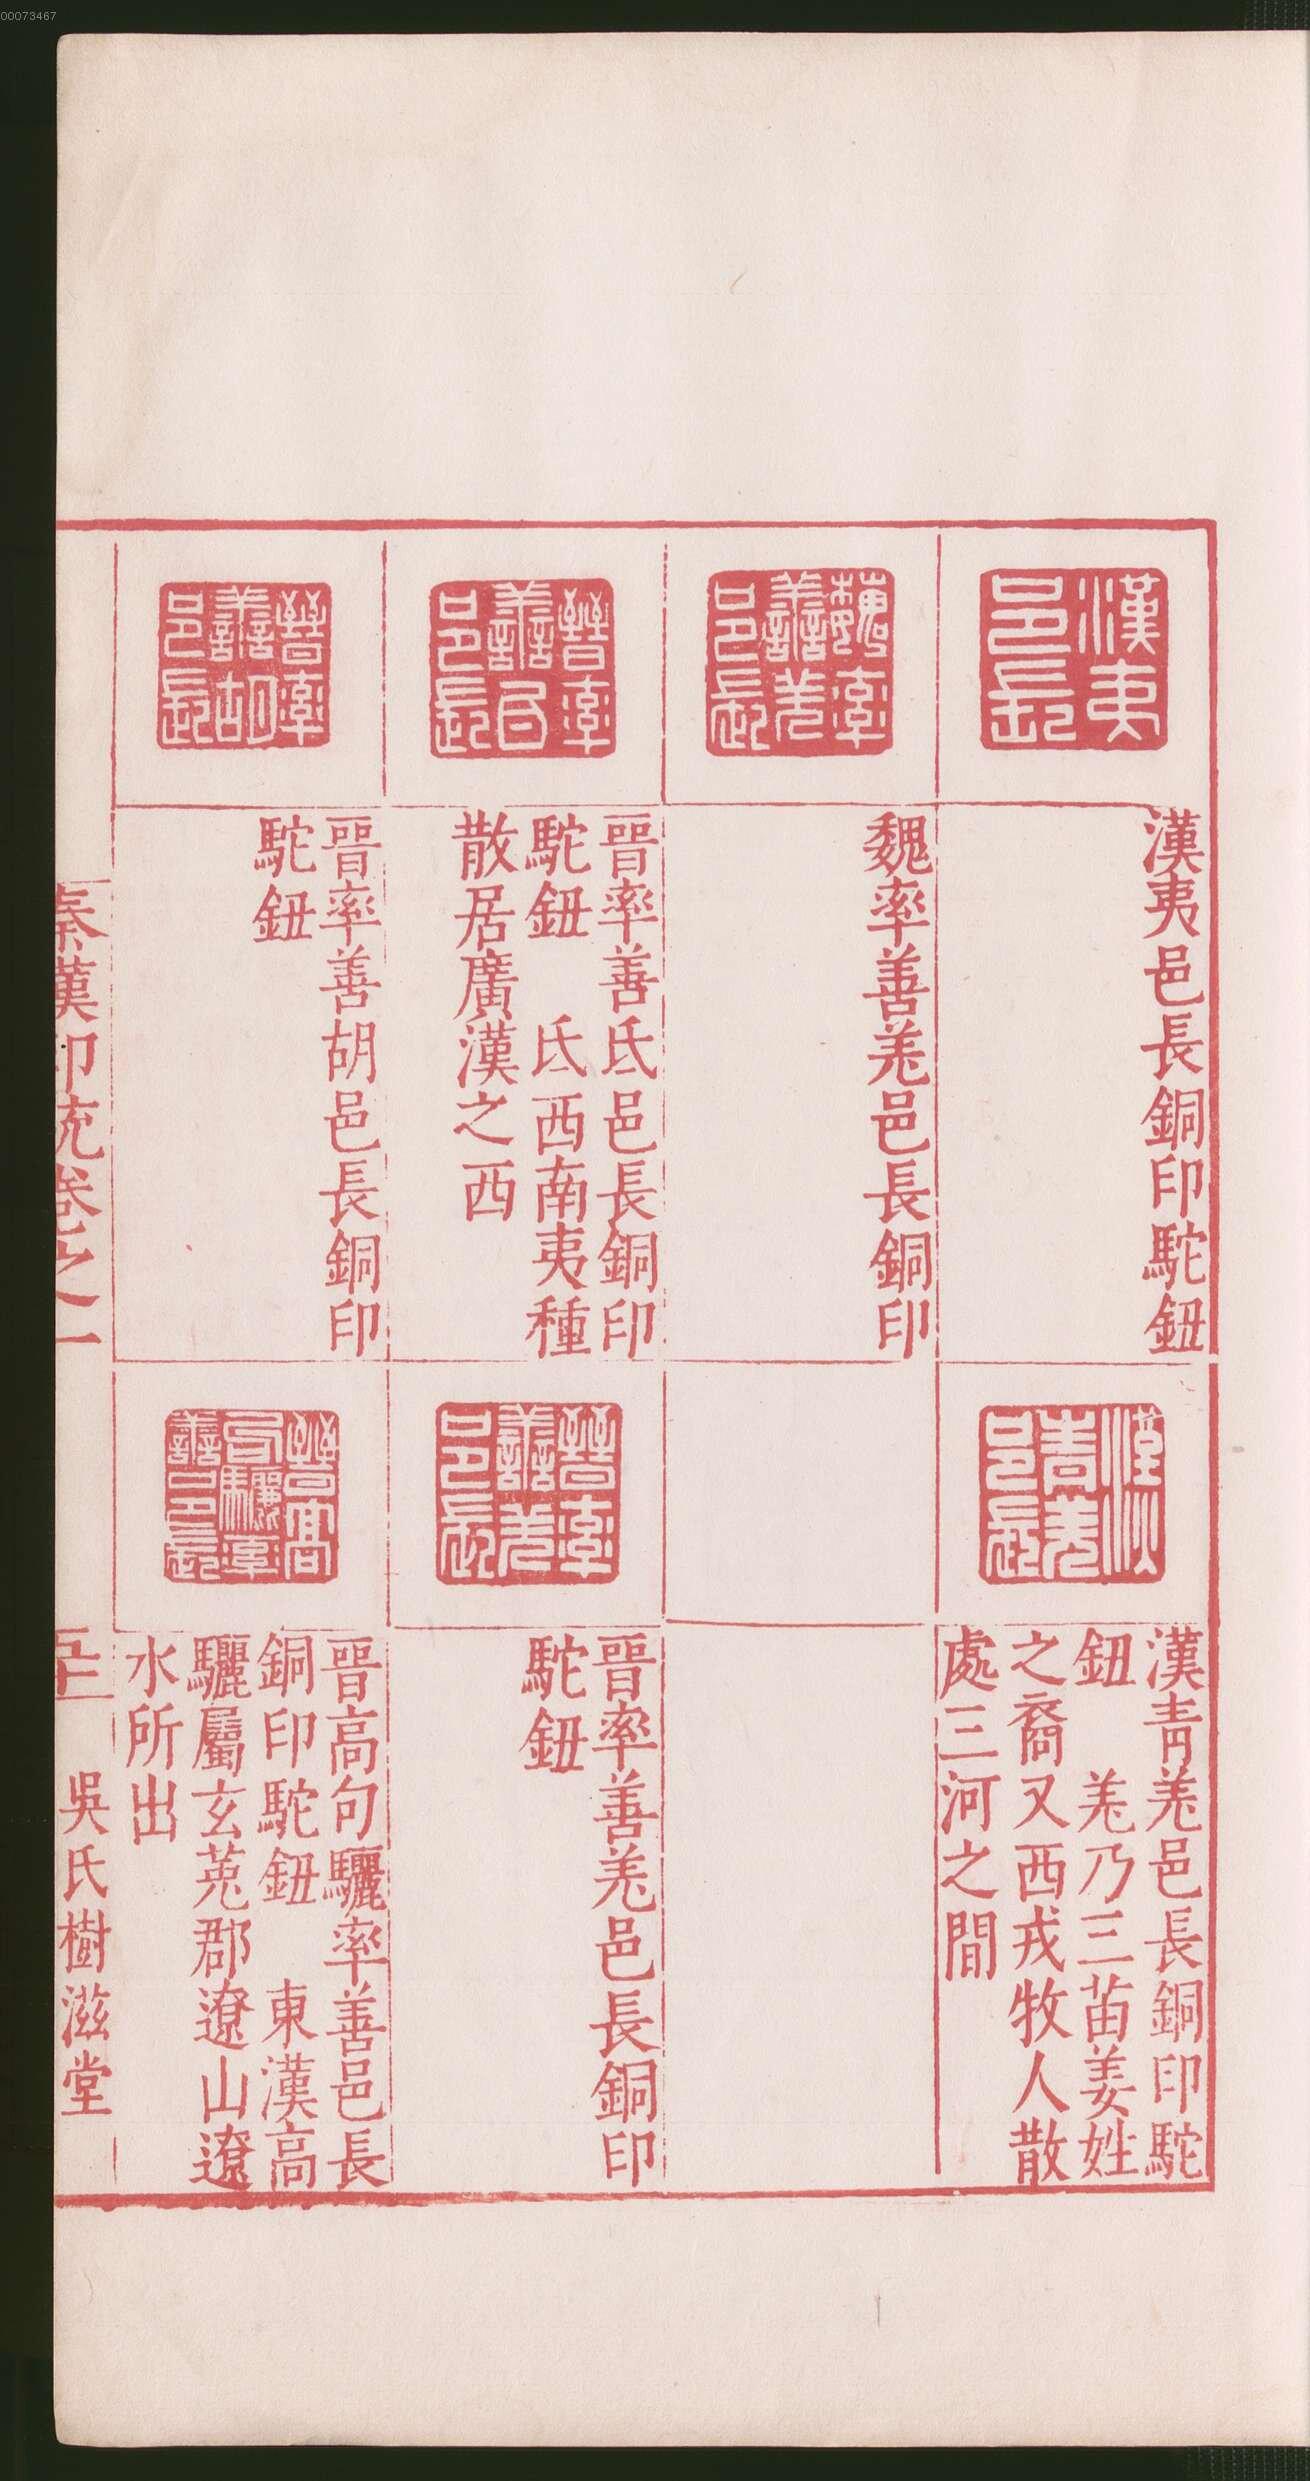 00073467
漢夷
邑長
漢夷邑長銅印駝鈕
漢
青羌
邑長
漢青羌邑長銅印駝
鈕　羌乃三苗姜姓
之裔又西戎牧人散
處三河之間
魏率
善羌
邑長
魏率善羌邑長銅印
晉率
善氐
邑長
晉率善氐邑長銅印
駝鈕　氐西南夷種
散居廣漢之西
晉率
善羌
邑長
晉率善羌邑長銅印
駝鈕
晉率
善胡
邑長
晉率善胡邑長銅印
駝鈕
晉高
句驪率
善邑長
晉高句驪率善邑長
銅印駝鈕　東漢高
驪屬玄菟郡遼山遼
水所出
秦漢印統卷之一
吳氏樹滋堂